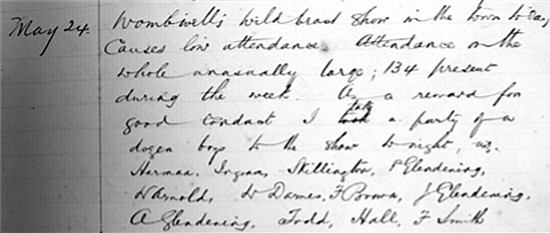 May 24. Wombwell's wild beast show in the town to day
Causes low attendance. Attendance on the
whole unusually large; 134 present
during the week. As a reward for
good conduct I take a party of a
dozen boys to the show to-night, viz.
Harman, Ingram, Skillington, P Glendening,
W Arnold, W Dames, F Brown, J Glendening,
A Glendening, Todd, Hall, F Smith